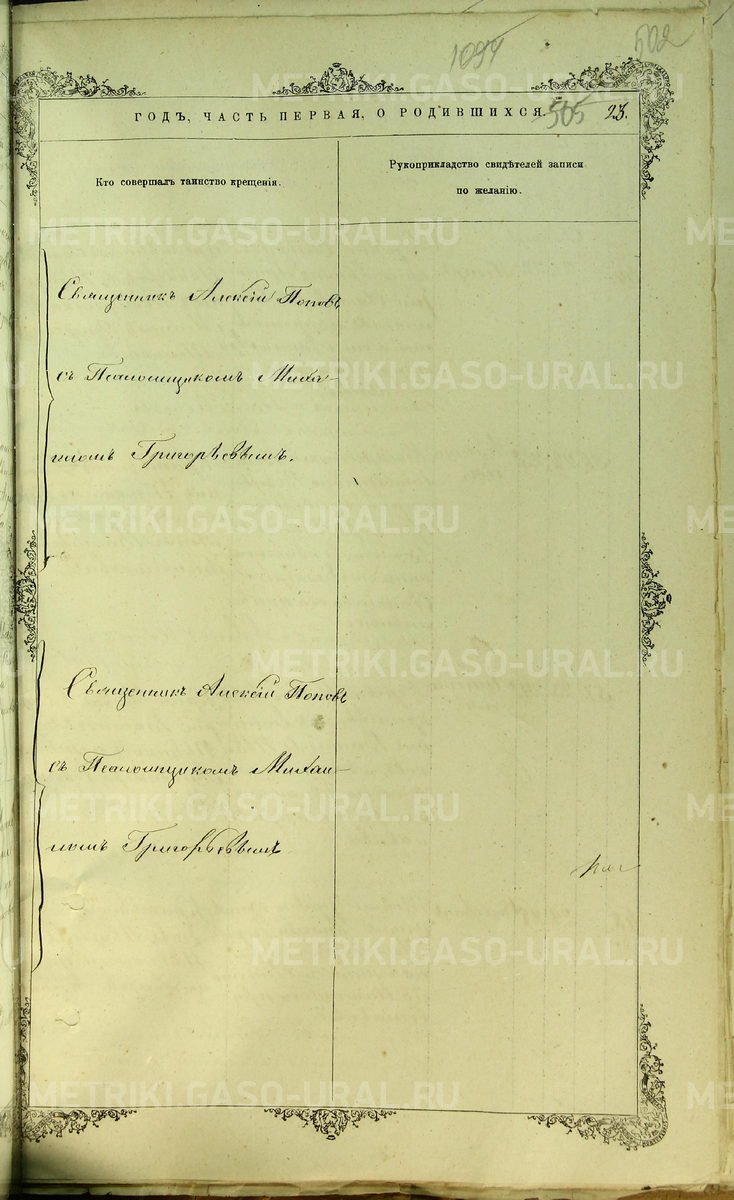 1094
502
ГОДЪ, ЧАСТЬ ПЕРВАЯ, О РОДИВШИХСЯ.
505
23.
Кто совершалъ таинство крещенія.
Рукоприкладство свидѣтелей записи
по желанію.
Священникъ Алексій Поповъ
съ Псаломщикомъ Миха-
иломъ Григорьевымъ.
Священникъ Алексій Поповъ
съ Псаломщикомъ Михаи-
ломъ Григорьевымъ
METRIKI.GASO-URAL.RU